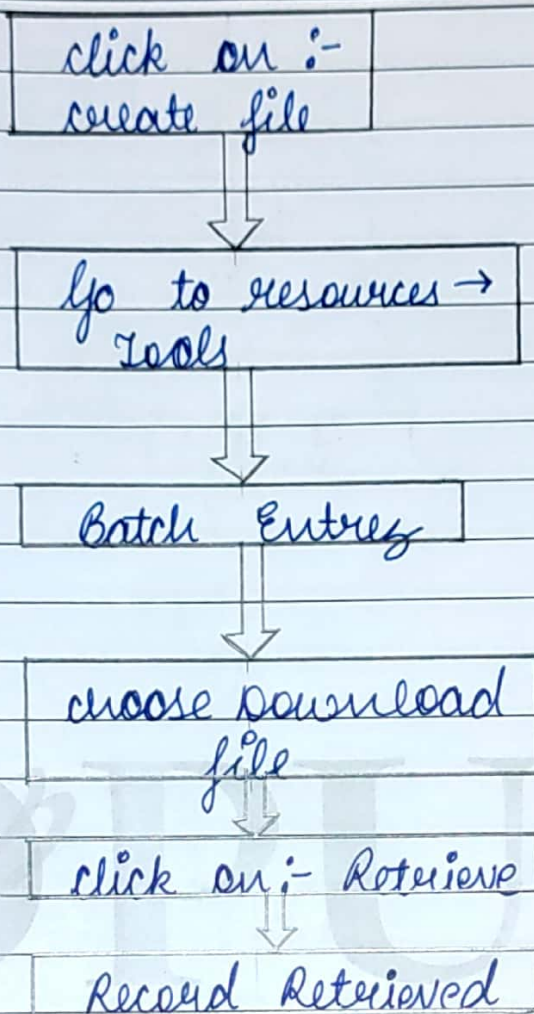 click on :-
create file
Go to resources →
Tools
Batch Entrez
choose Download
file
click on :- Retrieve
Record Retrieved